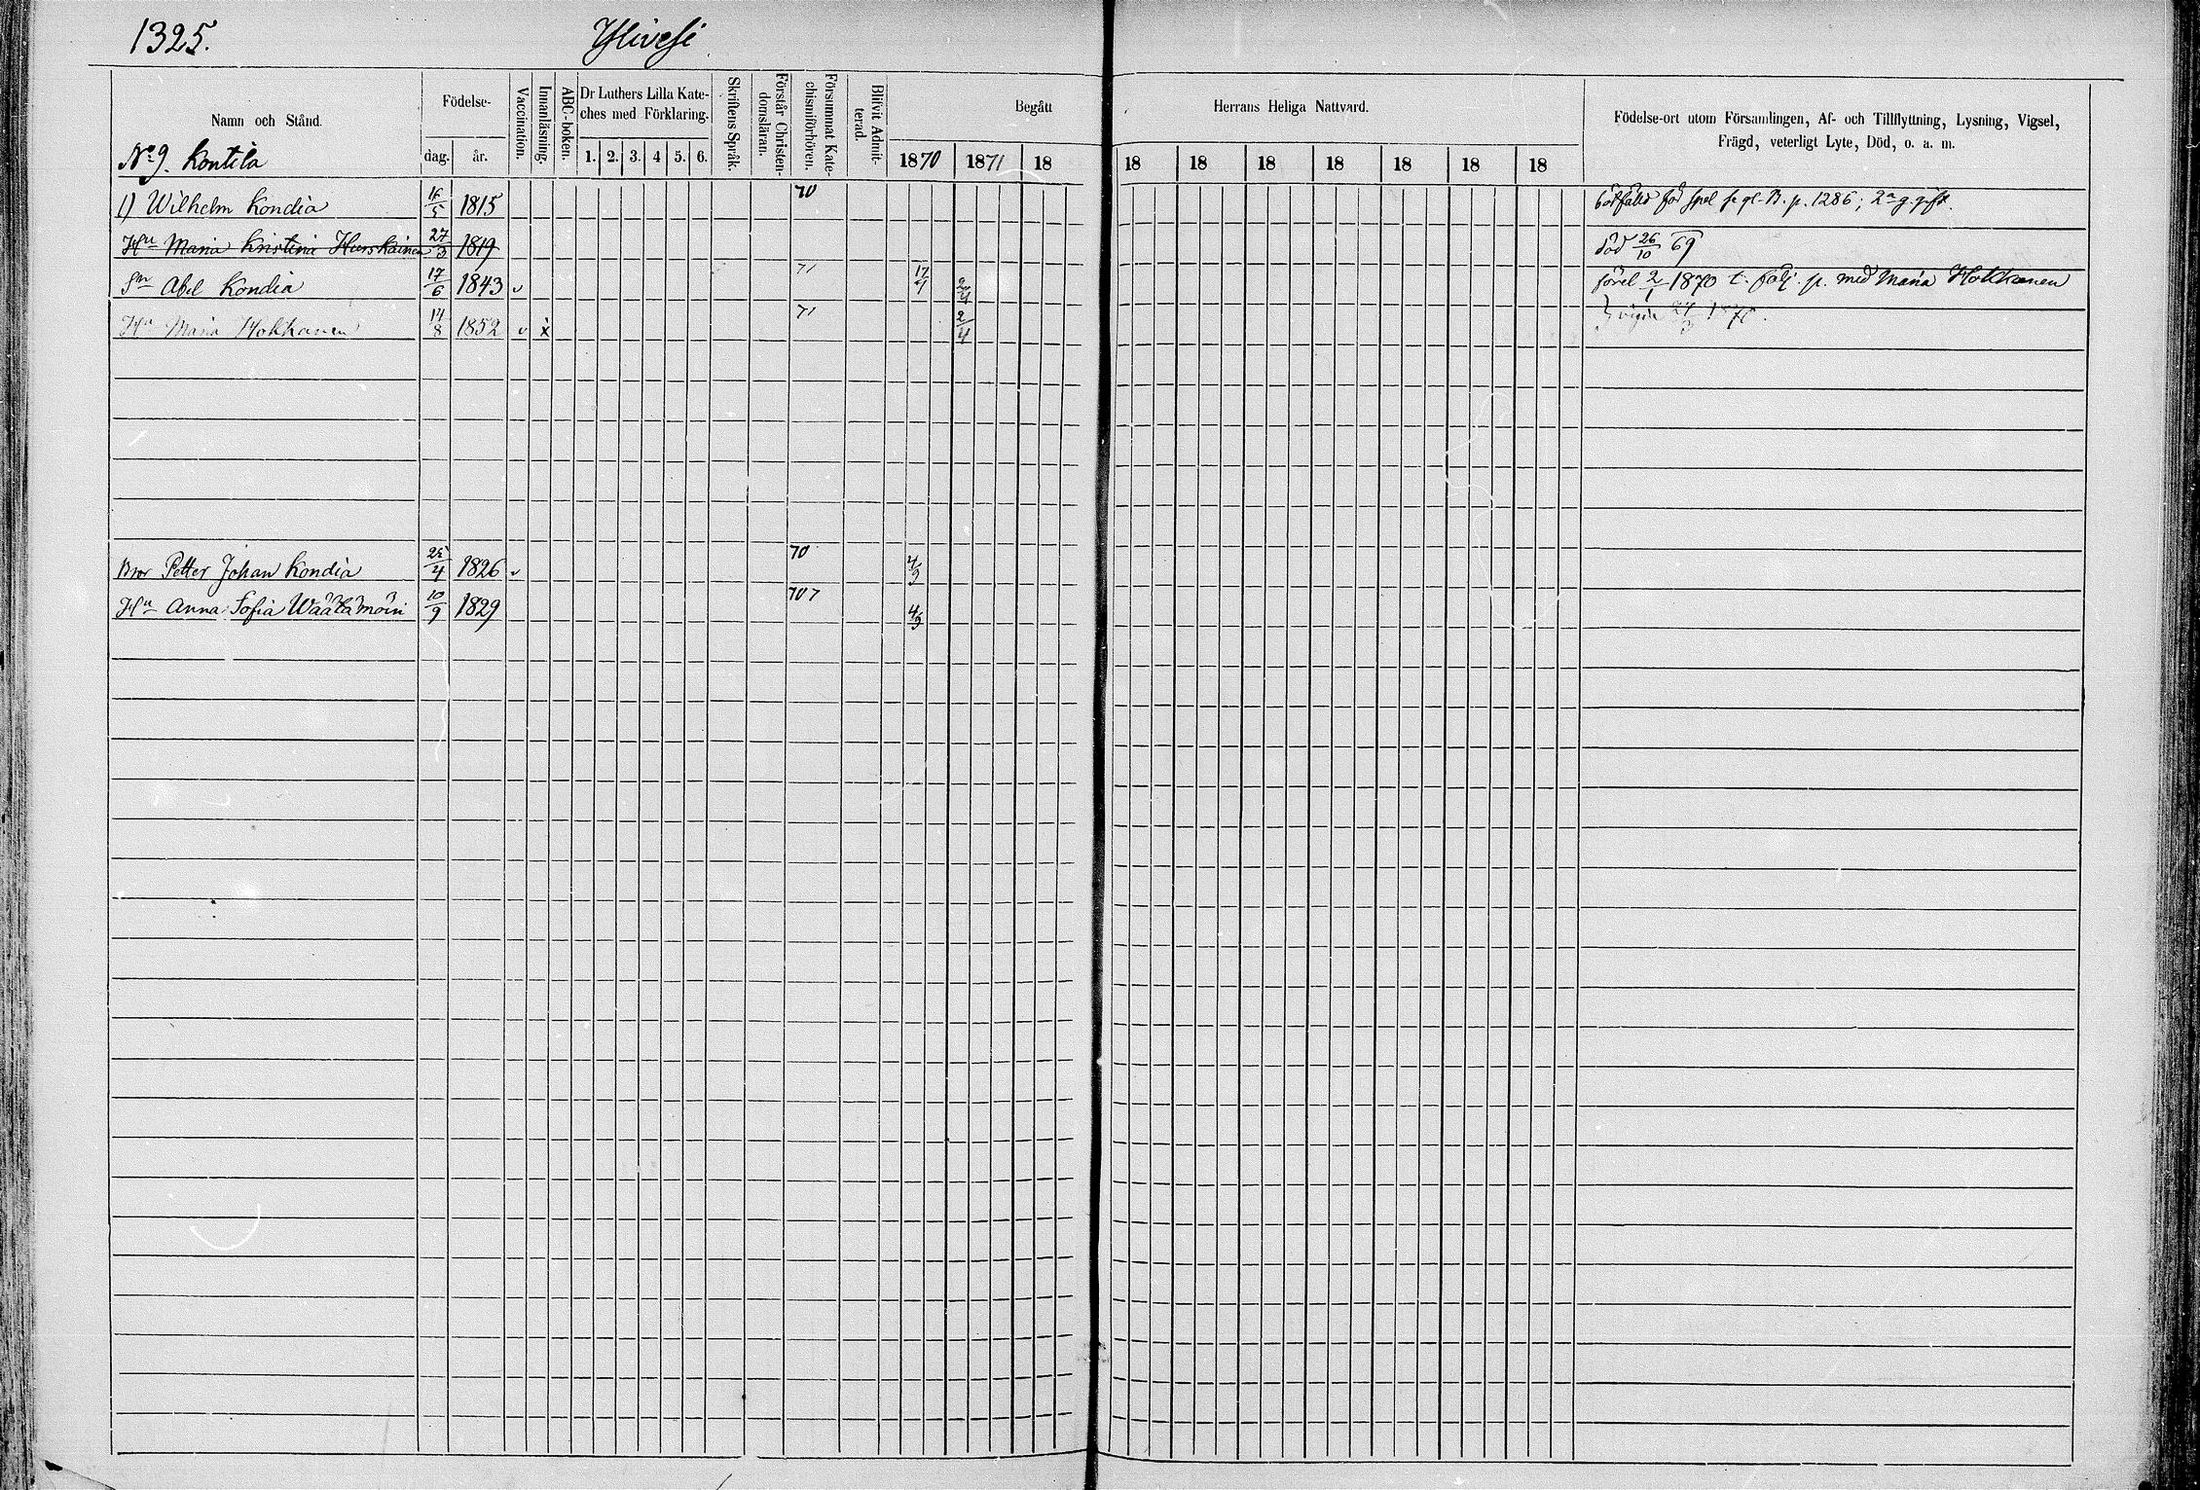 1325. Ylivesi
Namn och Stånd.
Födelse-
dag. år.
Vaccination.
Innanläsning.
ABC-boken.
Dr Luthers Lilla Kate-
ches med Förklaring.
1. 2. 3. 4 5. 6.
Skriftens Språk.
Förstår Christen-
domsläran.
Försummat Kate-
chismiförhören.
Blifvit Admit-
terad.
Begått Herrans Heliga Nattvard.
1870 1871 18 18 18 18 18 18 18 18
Födelse-ort utom Församlingen, Af- och Tillflyttning, Lysning, Vigsel,
Frägd, veterligt Lyte, Död, o. a. m.
No 9. Kontila
1) Wilhelm Kondia 16/5 1815 70 bötfälld för spel se gl. B. p. 1286; 2a g. gift.
Hu Maria Kristina Hurskainen 27/3 1819 död 26/10 69
Sn Abel Kondia 17/6 1843 v 71 17/4 2/4 förel 2/1 1870 t. följ. p. med Maria Hokkanen
Hu Maria Hokkanen 14/8 1852 v x 71 2/4
Bror Petter Johan Kondia 25/4 1826 v 70 4/9
Hu Anna Sofia Wäätämöin 10/9 1829 70 7 4/9